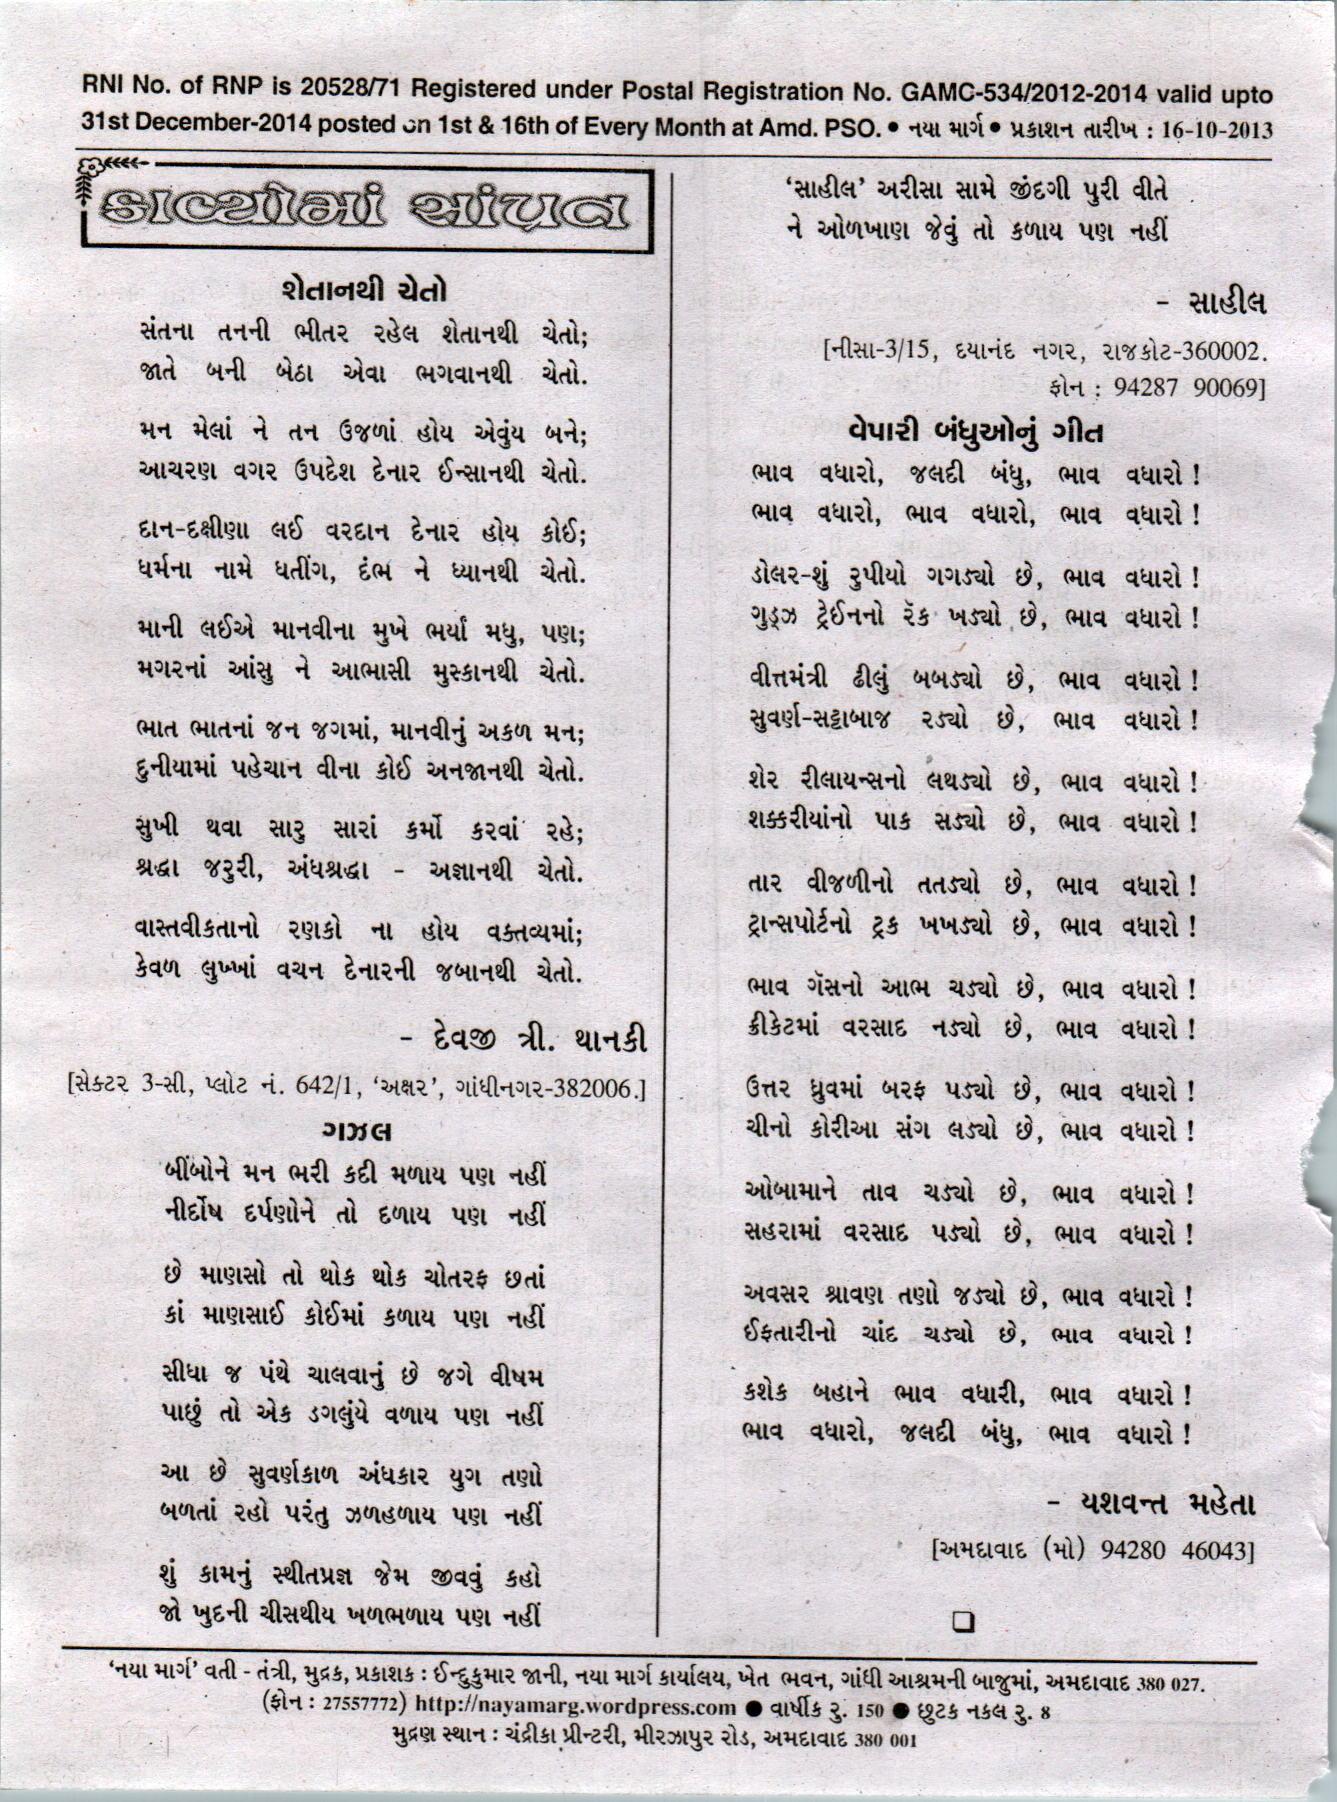 RNI No. of RNP is 20528/71 Registered under Postal Registration No. GAMC-534/2012-2014 valid upto
31st December-2014 posted on 1st & 16th of Every Month at Amd. PSO. • નયા માર્ગ • પ્રકાશન તારીખ : 16-10-2013
કાવ્યોમાં સાંપ્રત
શેતાનથી ચેતો
સંતના તનની ભીતર રહેલ શેતાનથી ચેતો;
જાતે બની બેઠા એવા ભગવાનથી ચેતો.
મન મેલાં ને તન ઉજળાં હોય એવુંય બને;
આચરણ વગર ઉપદેશ દેનાર ઈન્સાનથી ચેતો.
દાન-દક્ષીણા લઈ વરદાન દેનાર હોય કોઈ;
ધર્મના નામે ધતીંગ, દંભ ને ધ્યાનથી ચેતો.
માની લઈએ માનવીના મુખે ભર્યાં મધુ, પણ;
મગરનાં આંસુ ને આભાસી મુસ્કાનથી ચેતો.
ભાત ભાતનાં જન જગમાં, માનવીનું અકળ મન;
દુનીયામાં પહેચાન વીના કોઈ અનજાનથી ચેતો.
સુખી થવા સારુ સારાં કર્મો કરવાં રહે;
શ્રદ્ધા જરુરી, અંધશ્રદ્ધા - અજ્ઞાનથી ચેતો.
વાસ્તવીકતાનો રણકો ના હોય વક્તવ્યમાં;
કેવળ લુખ્ખાં વચન દેનારની જબાનથી ચેતો.
- દેવજી ત્રી. થાનકી
[સેક્ટર 3-સી, પ્લોટ નં. 642/1, ‘અક્ષર’, ગાંધીનગર-382006.]
ગઝલ
બીંબોને મન ભરી કદી મળાય પણ નહીં
નીર્દોષ દર્પણોને તો દળાય પણ નહીં
છે માણસો તો થોક થોક ચોતરફ છતાં
કાં માણસાઈ કોઈમાં કળાય પણ નહીં
સીધા જ પંથે ચાલવાનું છે જગે વીષમ
પાછું તો એક ડગલુંયે વળાય પણ નહીં
આ છે સુવર્ણકાળ અંધકાર યુગ તણો
બળતાં રહો પરંતુ ઝળહળાય પણ નહીં
શું કામનું સ્થીતપ્રજ્ઞ જેમ જીવવું કહો
જો ખુદની ચીસથીય ખળભળાય પણ નહીં
‘સાહીલ’ અરીસા સામે જીંદગી પુરી વીતે
ને ઓળખાણ જેવું તો કળાય પણ નહીં
- સાહીલ
[નીસા-3/15, દયાનંદ નગર, રાજકોટ-360002.
ફોન : 94287 90069]
વેપારી બંધુઓનું ગીત
ભાવ વધારો, જલદી બંધુ, ભાવ વધારો !
ભાવ વધારો, ભાવ વધારો, ભાવ વધારો !
ડોલર-શું રુપીયો ગગડ્યો છે, ભાવ વધારો !
ગુડ્ઝ ટ્રેઈનનો રૅક ખડ્યો છે, ભાવ વધારો !
વીત્તમંત્રી ઢીલું બબડ્યો છે, ભાવ વધારો !
સુવર્ણ-સટ્ટાબાજ રડ્યો છે, ભાવ વધારો !
શેર રીલાયન્સનો લથડ્યો છે, ભાવ વધારો !
શક્કરીયાંનો પાક સડ્યો છે, ભાવ વધારો !
તાર વીજળીનો તતડ્યો છે, ભાવ વધારો !
ટ્રાન્સપોર્ટનો ટ્રક ખખડ્યો છે, ભાવ વધારો !
ભાવ ગૅસનો આભ ચડ્યો છે, ભાવ વધારો !
ક્રીકેટમાં વરસાદ નડ્યો છે, ભાવ વધારો !
ઉત્તર ધ્રુવમાં બરફ પડ્યો છે, ભાવ વધારો !
ચીનો કોરીઆ સંગ લડ્યો છે, ભાવ વધારો !
ઓબામાને તાવ ચડ્યો છે, ભાવ વધારો !
સહરામાં વરસાદ પડ્યો છે, ભાવ વધારો !
અવસર શ્રાવણ તણો જડ્યો છે, ભાવ વધારો !
ઈફતારીનો ચાંદ ચડ્યો છે, ભાવ વધારો !
કશેક બહાને ભાવ વધારી, ભાવ વધારો !
ભાવ વધારો, જલદી બંધુ, ભાવ વધારો !
- યશવન્ત મહેતા
[અમદાવાદ (મો) 94280 46043]
‘નયા માર્ગ’ વતી - તંત્રી, મુદ્રક, પ્રકાશક : ઈન્દુકુમાર જાની, નયા માર્ગ કાર્યાલય, ખેત ભવન, ગાંધી આશ્રમની બાજુમાં, અમદાવાદ 380 027.
(ફોન : 27557772) http://nayamarg.wordpress.com ● વાર્ષીક રુ. 150 ● છુટક નકલ રુ. 8
મુદ્રણ સ્થાન : ચંદ્રીકા પ્રીન્ટરી, મીરઝાપુર રોડ, અમદાવાદ 380 001